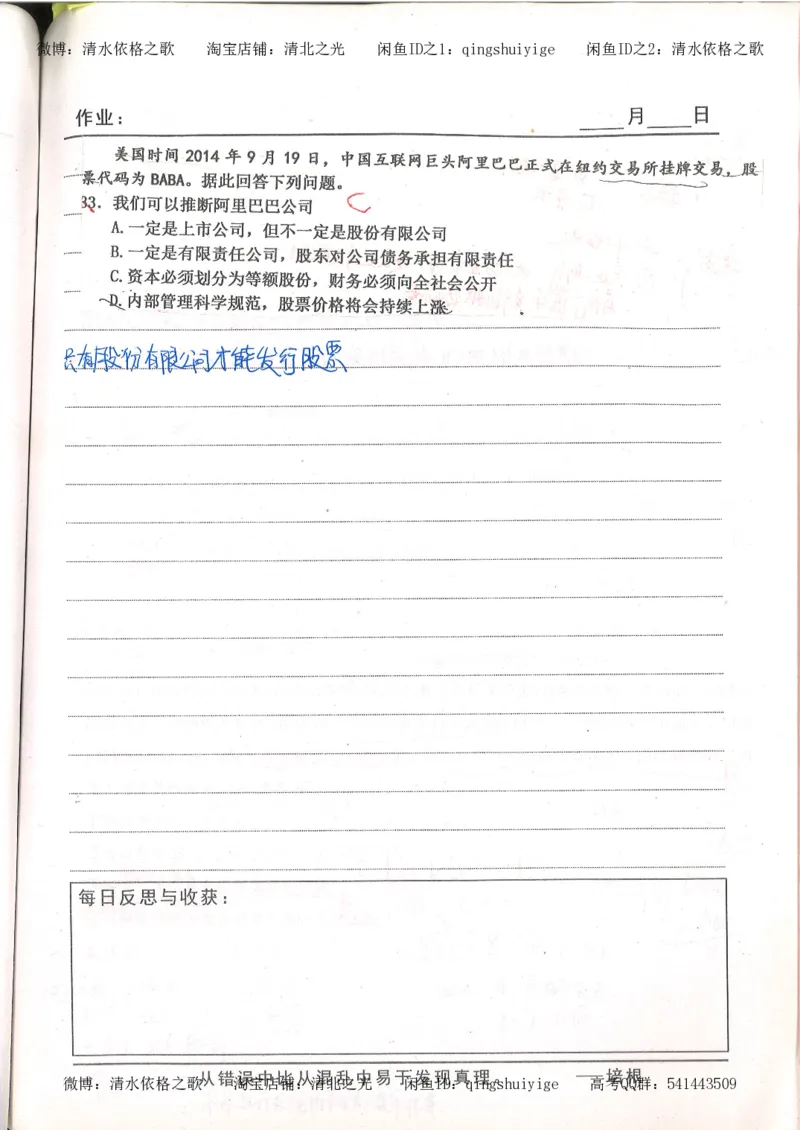 微博：清水依格之歌 淘宝店铺：清北之光 闲鱼ID之1：qingshuiyige 闲鱼ID之2：清水依格之歌
作业： ____月____日
美国时间 2014 年 9 月 19 日，中国互联网巨头阿里巴巴正式在纽约交易所挂牌交易，股
票代码为 BABA。据此回答下列问题。
33．我们可以推断阿里巴巴公司 C
A.一定是上市公司，但不一定是股份有限公司
B.一定是有限责任公司，股东对公司债务承担有限责任
C.资本必须划分为等额股份，财务必须向全社会公开
D.内部管理科学规范，股票价格将会持续上涨
只有股份有限公司才能发行股票
每日反思与收获：
从错误中比从混乱中易于发现真理。 ——培根
微博：清水依格之歌 淘宝店铺：清北之光 闲鱼ID：qingshuiyige 高考QQ群：541443509